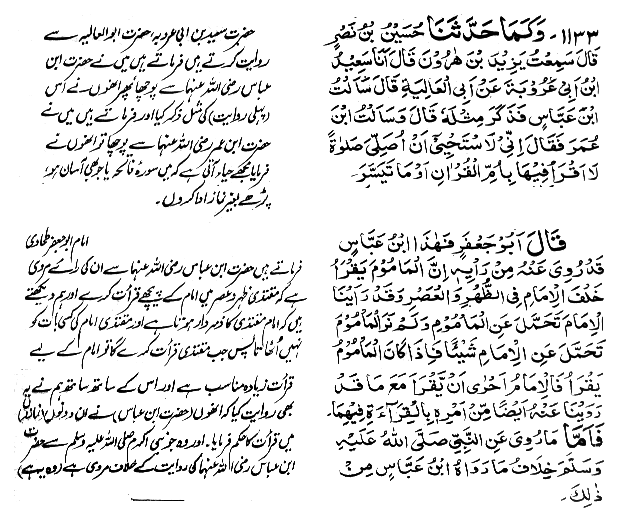 ١١٣٣۔ وَكَمَا حَدَّثَنَا حُسَيْنُ بْنُ نَصْرٍ
قَالَ سَمِعْتُ يَزِيدَ بْنَ هَارُونَ قَالَ أَنَا سَعِيدُ
ابْنُ أَبِي عَرُوبَةَ عَنْ أَبِي الْعَالِيَةِ قَالَ سَأَلْتُ
ابْنَ عَبَّاسٍ فَذَكَرَ مِثْلَهُ قَالَ وَسَأَلْتُ ابْنَ
عُمَرَ فَقَالَ إِنِّي لَأَسْتَحْيِي أَنْ أُصَلِّيَ صَلٰوةً
لَا أَقْرَأُ فِيهَا بِأُمِّ الْقُرْآنِ أَوْ مَا تَيَسَّرَ۔
قَالَ أَبُو جَعْفَرٍ فَهٰذَا ابْنُ عَبَّاسٍ
قَدْ رُوِيَ عَنْهُ مِنْ رَأْيِهِ إِنَّ الْمَأْمُومَ يَقْرَأُ
خَلْفَ الْإِمَامِ فِي الظُّهْرِ وَالْعَصْرِ وَقَدْ رَأَيْنَا
الْإِمَامَ تَحَمَّلَ عَنِ الْمَأْمُومِ وَلَمْ نَرَ الْمَأْمُومَ
تَحَمَّلَ عَنِ الْإِمَامِ شَيْئًا فَإِذَا كَانَ الْمَأْمُومُ
يَقْرَأُ فَالْإِمَامُ أَحْرَى أَنْ يَقْرَأَ مَعَ مَا قَدْ
رَوَيْنَا عَنْهُ أَيْضًا مِنْ أَمْرِهِ بِالْقِرَاءَةِ فِيهِمَا۔
فَأَمَّا مَا رُوِيَ عَنِ النَّبِيِّ صَلَّى اللهُ عَلَيْهِ
وَسَلَّمَ خِلَافُ مَا رَوَاهُ ابْنُ عَبَّاسٍ مِنْ
ذٰلِكَ۔
حضرت سعید بن ابی عروبہ، حضرت ابو العالیہ سے
روایت کرتے ہیں فرماتے ہیں میں نے حضرت ابن
عباس رضی اللہ عنہما سے پوچھا پھر انہوں نے اس
(پہلی روایت) کی مثل ذکر کیا اور فرماتے ہیں میں نے
حضرت ابن عمر رضی اللہ عنہما سے پوچھا تو انہوں نے
فرمایا مجھے حیاء آتی ہے کہ میں سورۂ فاتحہ یا جو بھی آسان ہو،
پڑھے بغیر نماز ادا کروں۔
امام ابو جعفر طحاوی
فرماتے ہیں حضرت ابن عباس رضی اللہ عنہما سے ان کی رائے مروی
ہے کہ مقتدی ظہر و عصر میں امام کے پیچھے قرأت کرے اور ہم دیکھتے
ہیں کہ امام مقتدی کا ذمہ دار ہوتا ہے اور مقتدی امام کی کسی بات کو
نہیں اٹھاتا پس جب مقتدی قرأت کرے گا تو امام کے لیے
قرأت زیادہ مناسب ہے اور اس کے ساتھ ساتھ ہم نے یہ
بھی روایت کیا کہ انہوں (حضرت ابن عباس) نے ان دونوں (نمازوں)
میں قرأت کا حکم فرمایا۔ اور وہ جو نبی اکرم صلی اللہ علیہ وسلم سے حضرت
ابن عباس رضی اللہ عنہما کی روایت کے خلاف مروی ہے (وہ یہ ہے)